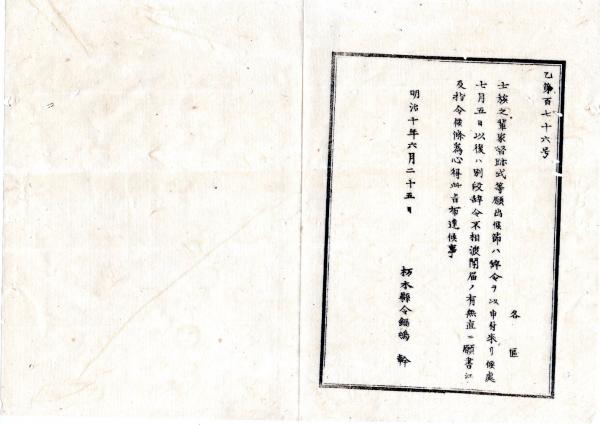 乙第百七十六号
各區
士族之輩家督跡式等願出候節ハ辞令ヲ以申付来リ候處
七月五日以後ハ別段辞令不相渡聞届ノ有無直ニ願書江
及指令候條為心得此旨布達候事
明治十年六月二十五日
栃木縣令鍋嶋幹